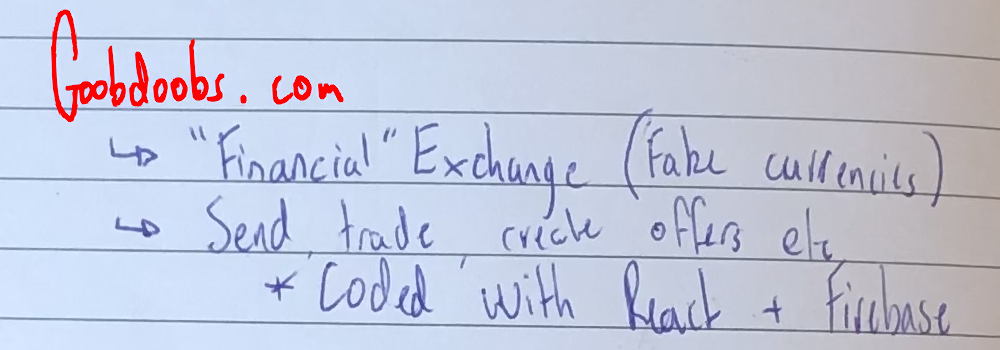 Goobdoobs.com
↳ "Financial" Exchange (Fake currencies)
↳ Send, trade, create offers etc
* Coded with React + Firebase